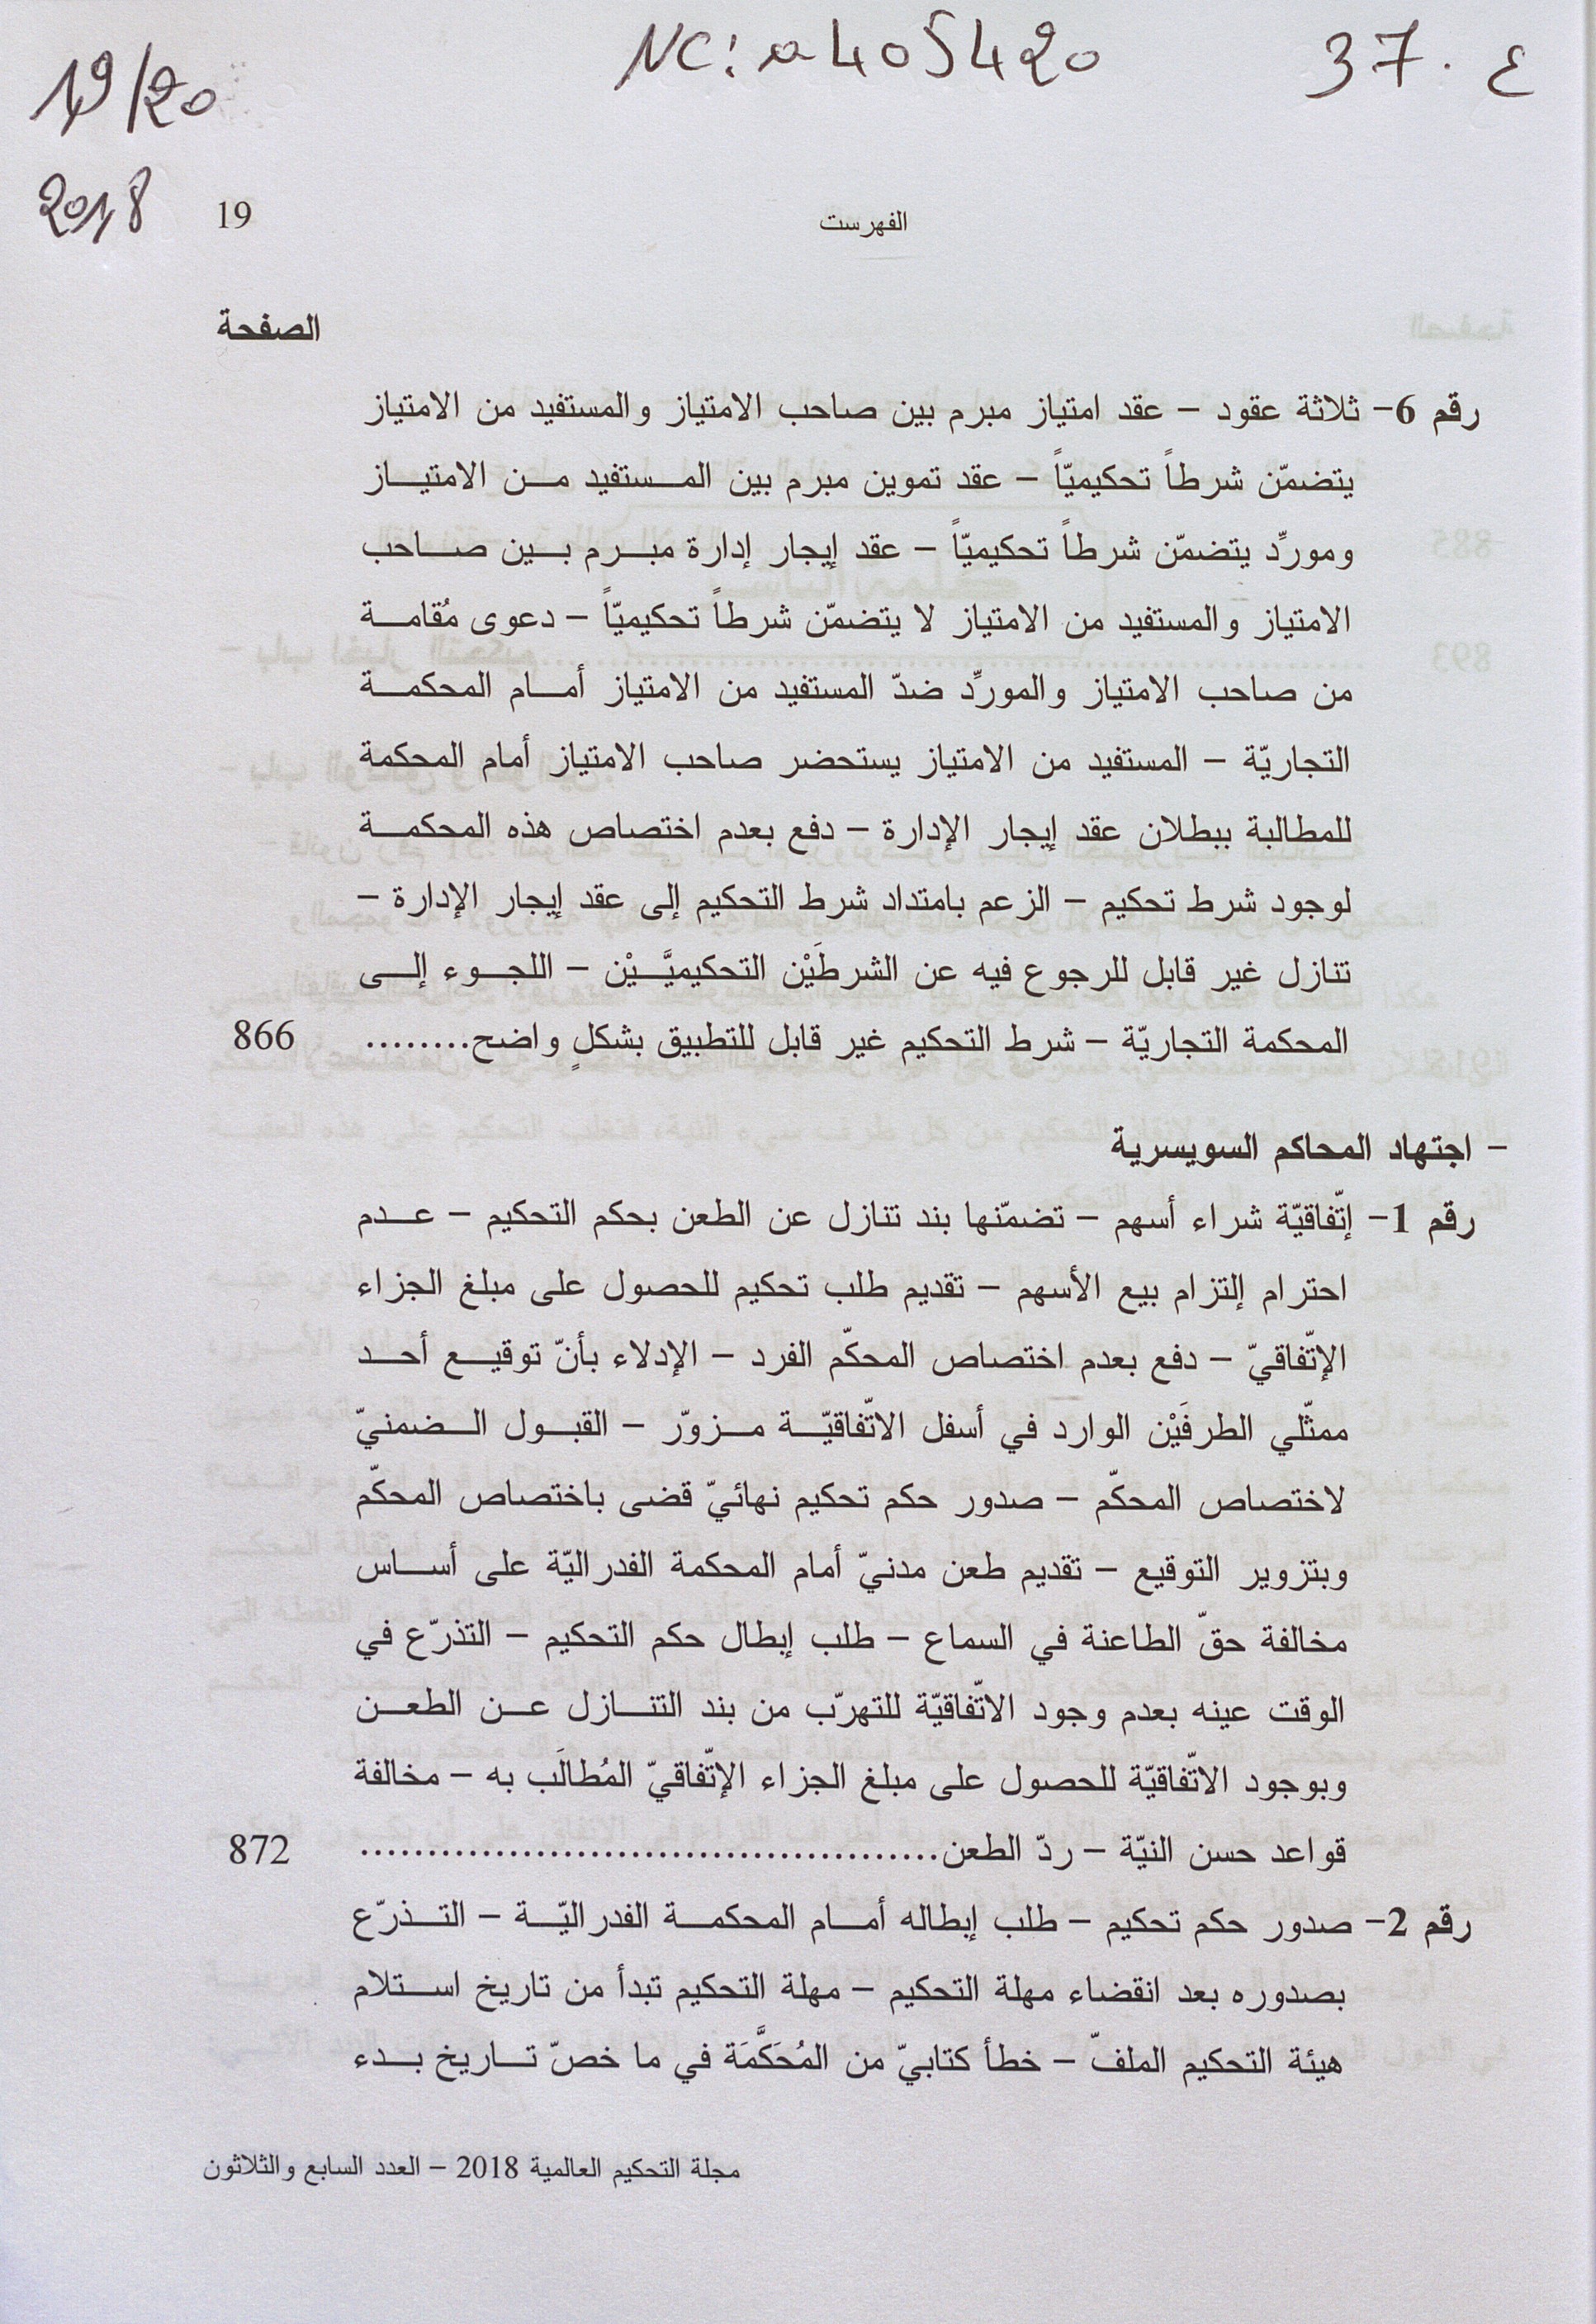 NC: a405420
37. ع
19/20
2018
19
الفهرست
الصفحة
رقم 6- ثلاثة عقود – عقد امتياز مبرم بين صاحب الامتياز والمستفيد من الامتياز
يتضمّن شرطاً تحكيميّاً – عقد تموين مبرم بين المستفيد من الامتياز
ومورِّد يتضمّن شرطاً تحكيميّاً – عقد إيجار إدارة مبرم بين صاحب
الامتياز والمستفيد من الامتياز لا يتضمّن شرطاً تحكيميّاً – دعوى مُقامة
من صاحب الامتياز والمورِّد ضدّ المستفيد من الامتياز أمام المحكمة
التجاريّة – المستفيد من الامتياز يستحضر صاحب الامتياز أمام المحكمة
للمطالبة ببطلان عقد إيجار الإدارة – دفع بعدم اختصاص هذه المحكمة
لوجود شرط تحكيم – الزعم بامتداد شرط التحكيم إلى عقد إيجار الإدارة –
تنازل غير قابل للرجوع فيه عن الشرطَيْن التحكيميَّيْن – اللجوء إلى
المحكمة التجاريّة – شرط التحكيم غير قابل للتطبيق بشكلٍ واضح........ 866
– اجتهاد المحاكم السويسرية
رقم 1- إتّفاقيّة شراء أسهم – تضمّنها بند تنازل عن الطعن بحكم التحكيم – عدم
احترام إلتزام بيع الأسهم – تقديم طلب تحكيم للحصول على مبلغ الجزاء
الإتّفاقيّ – دفع بعدم اختصاص المحكّم الفرد – الإدلاء بأنّ توقيع أحد
ممثّلي الطرفَيْن الوارد في أسفل الاتّفاقيّة مزوّر – القبول الضمنيّ
لاختصاص المحكّم – صدور حكم تحكيم نهائيّ قضى باختصاص المحكّم
وبتزوير التوقيع – تقديم طعن مدنيّ أمام المحكمة الفدراليّة على أساس
مخالفة حقّ الطاعنة في السماع – طلب إبطال حكم التحكيم – التذرّع في
الوقت عينه بعدم وجود الاتّفاقيّة للتهرّب من بند التنازل عن الطعن
وبوجود الاتّفاقيّة للحصول على مبلغ الجزاء الإتّفاقيّ المُطالَب به – مخالفة
قواعد حسن النيّة – ردّ الطعن........................................... 872
رقم 2- صدور حكم تحكيم – طلب إبطاله أمام المحكمة الفدراليّة – التذرّع
بصدوره بعد انقضاء مهلة التحكيم – مهلة التحكيم تبدأ من تاريخ استلام
هيئة التحكيم الملفّ – خطأ كتابيّ من المُحَكَّمَة في ما خصّ تاريخ بدء
مجلة التحكيم العالمية 2018 – العدد السابع والثلاثون